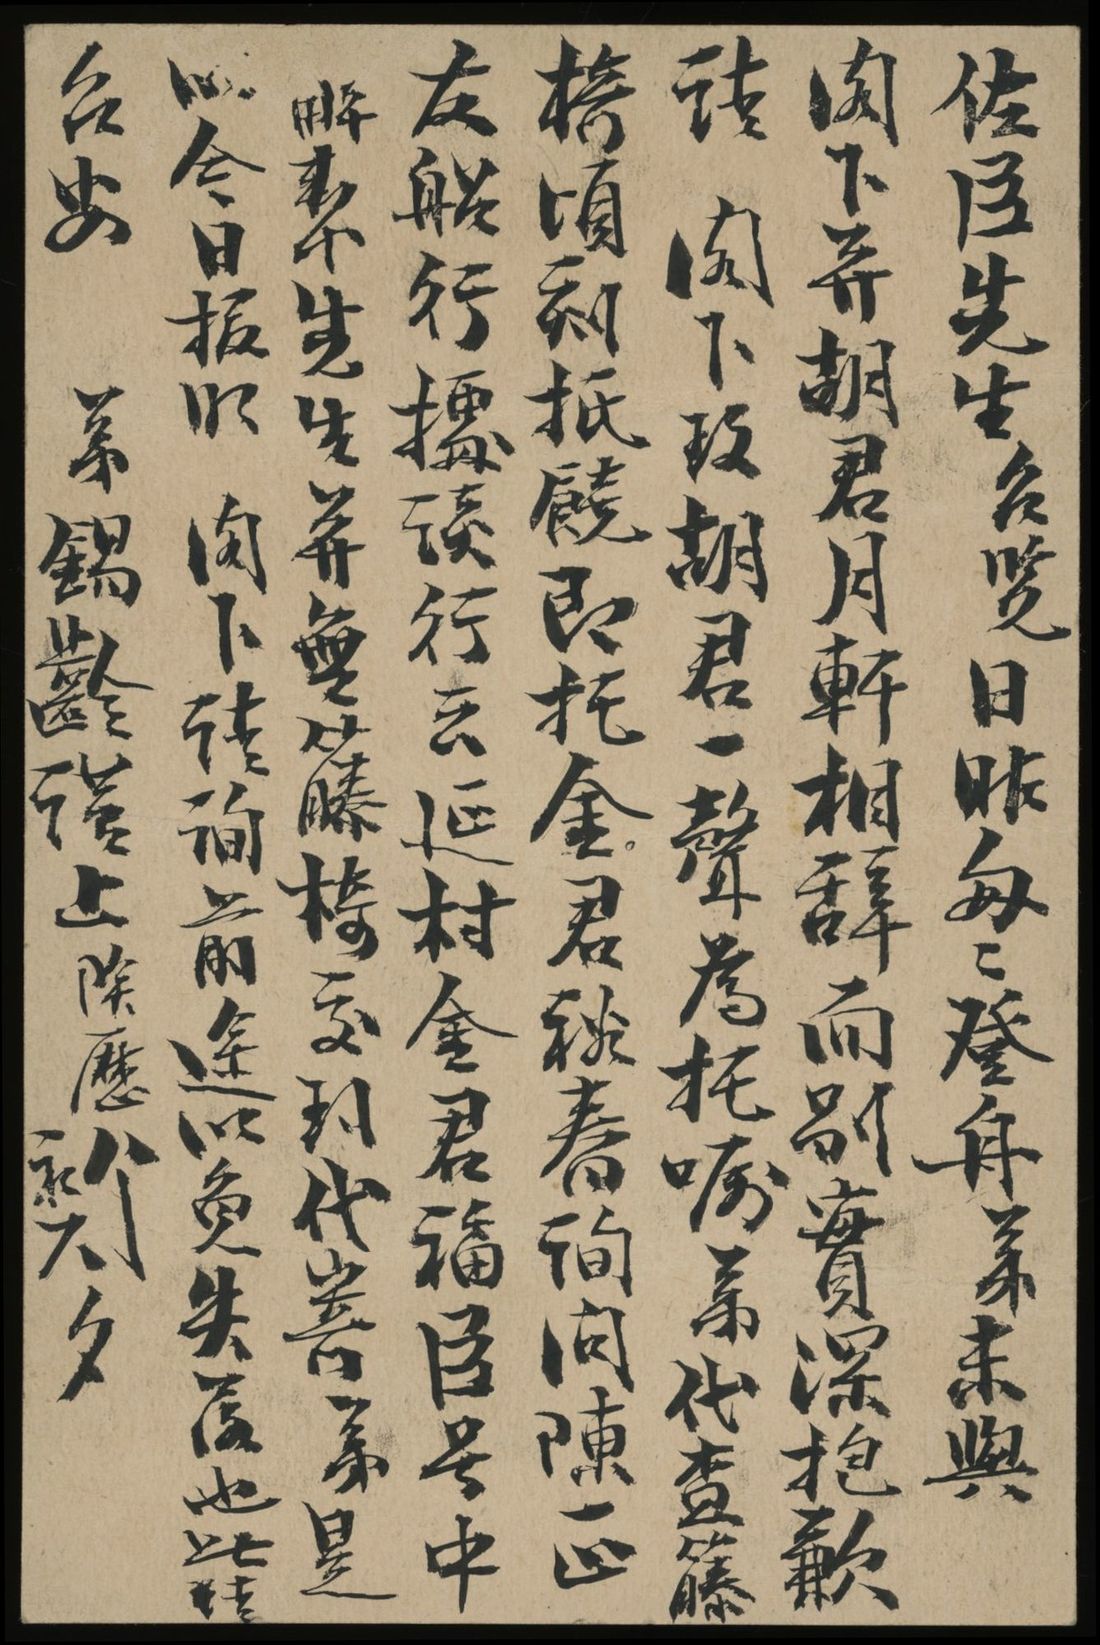 佐臣先生台覽日昨匆匆登舟弟未與
閣下并胡君月軒相辞而別實深抱歉
請 閣下致胡君一聲為托囑弟代查籐
椅頃刻抵饒即托金君禊春詢问陳正
友船行據該行云延村金君福臣号中
先生并無籐椅交到代寄弟是
以今日报明 閣下請詢前途以免失落也此請
台安 弟錫齡謹上陰歷 夕